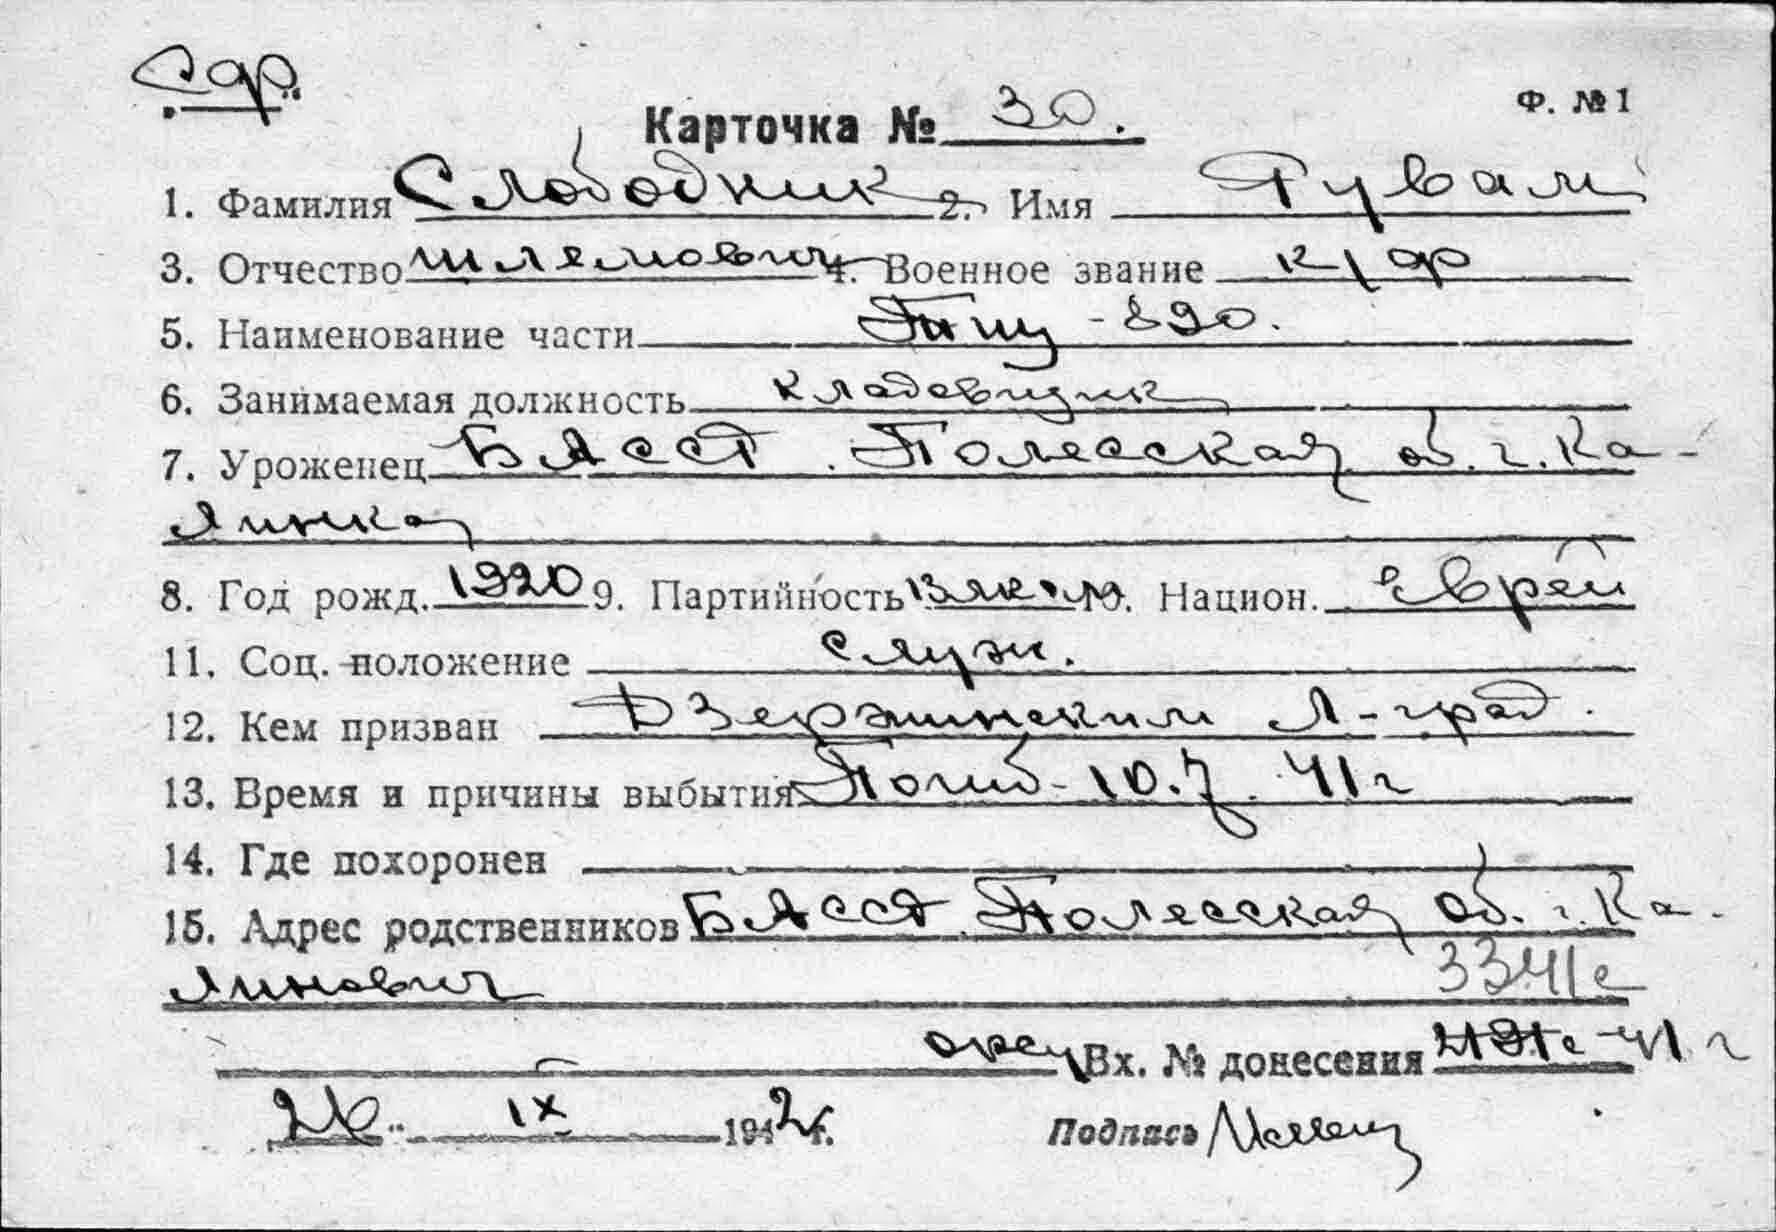 Сдр.
Ф. №1
Карточка № 30.
1. Фамилия Слободник 2. Имя Рувам
3. Отчество Шлемович 4. Военное звание к/ар
5. Наименование части Ппш - 890.
6. Занимаемая должность кладовщик
7. Уроженец БАССР. Полесская об. г. Ка-
линка
8. Год рожд. 1920 9. Партийность ВЛКСМ 10. Национ. Еврей
11. Соц. положение служ.
12. Кем призван Дзержинским Л-град.
13. Время и причины выбытия Погиб - 10.7.41г
14. Где похоронен
15. Адрес родственников БАССР. Полесская об. г. Ка-
линович
3341с
Вх. № донесения 41 г
26. IX 1942г. Подпись